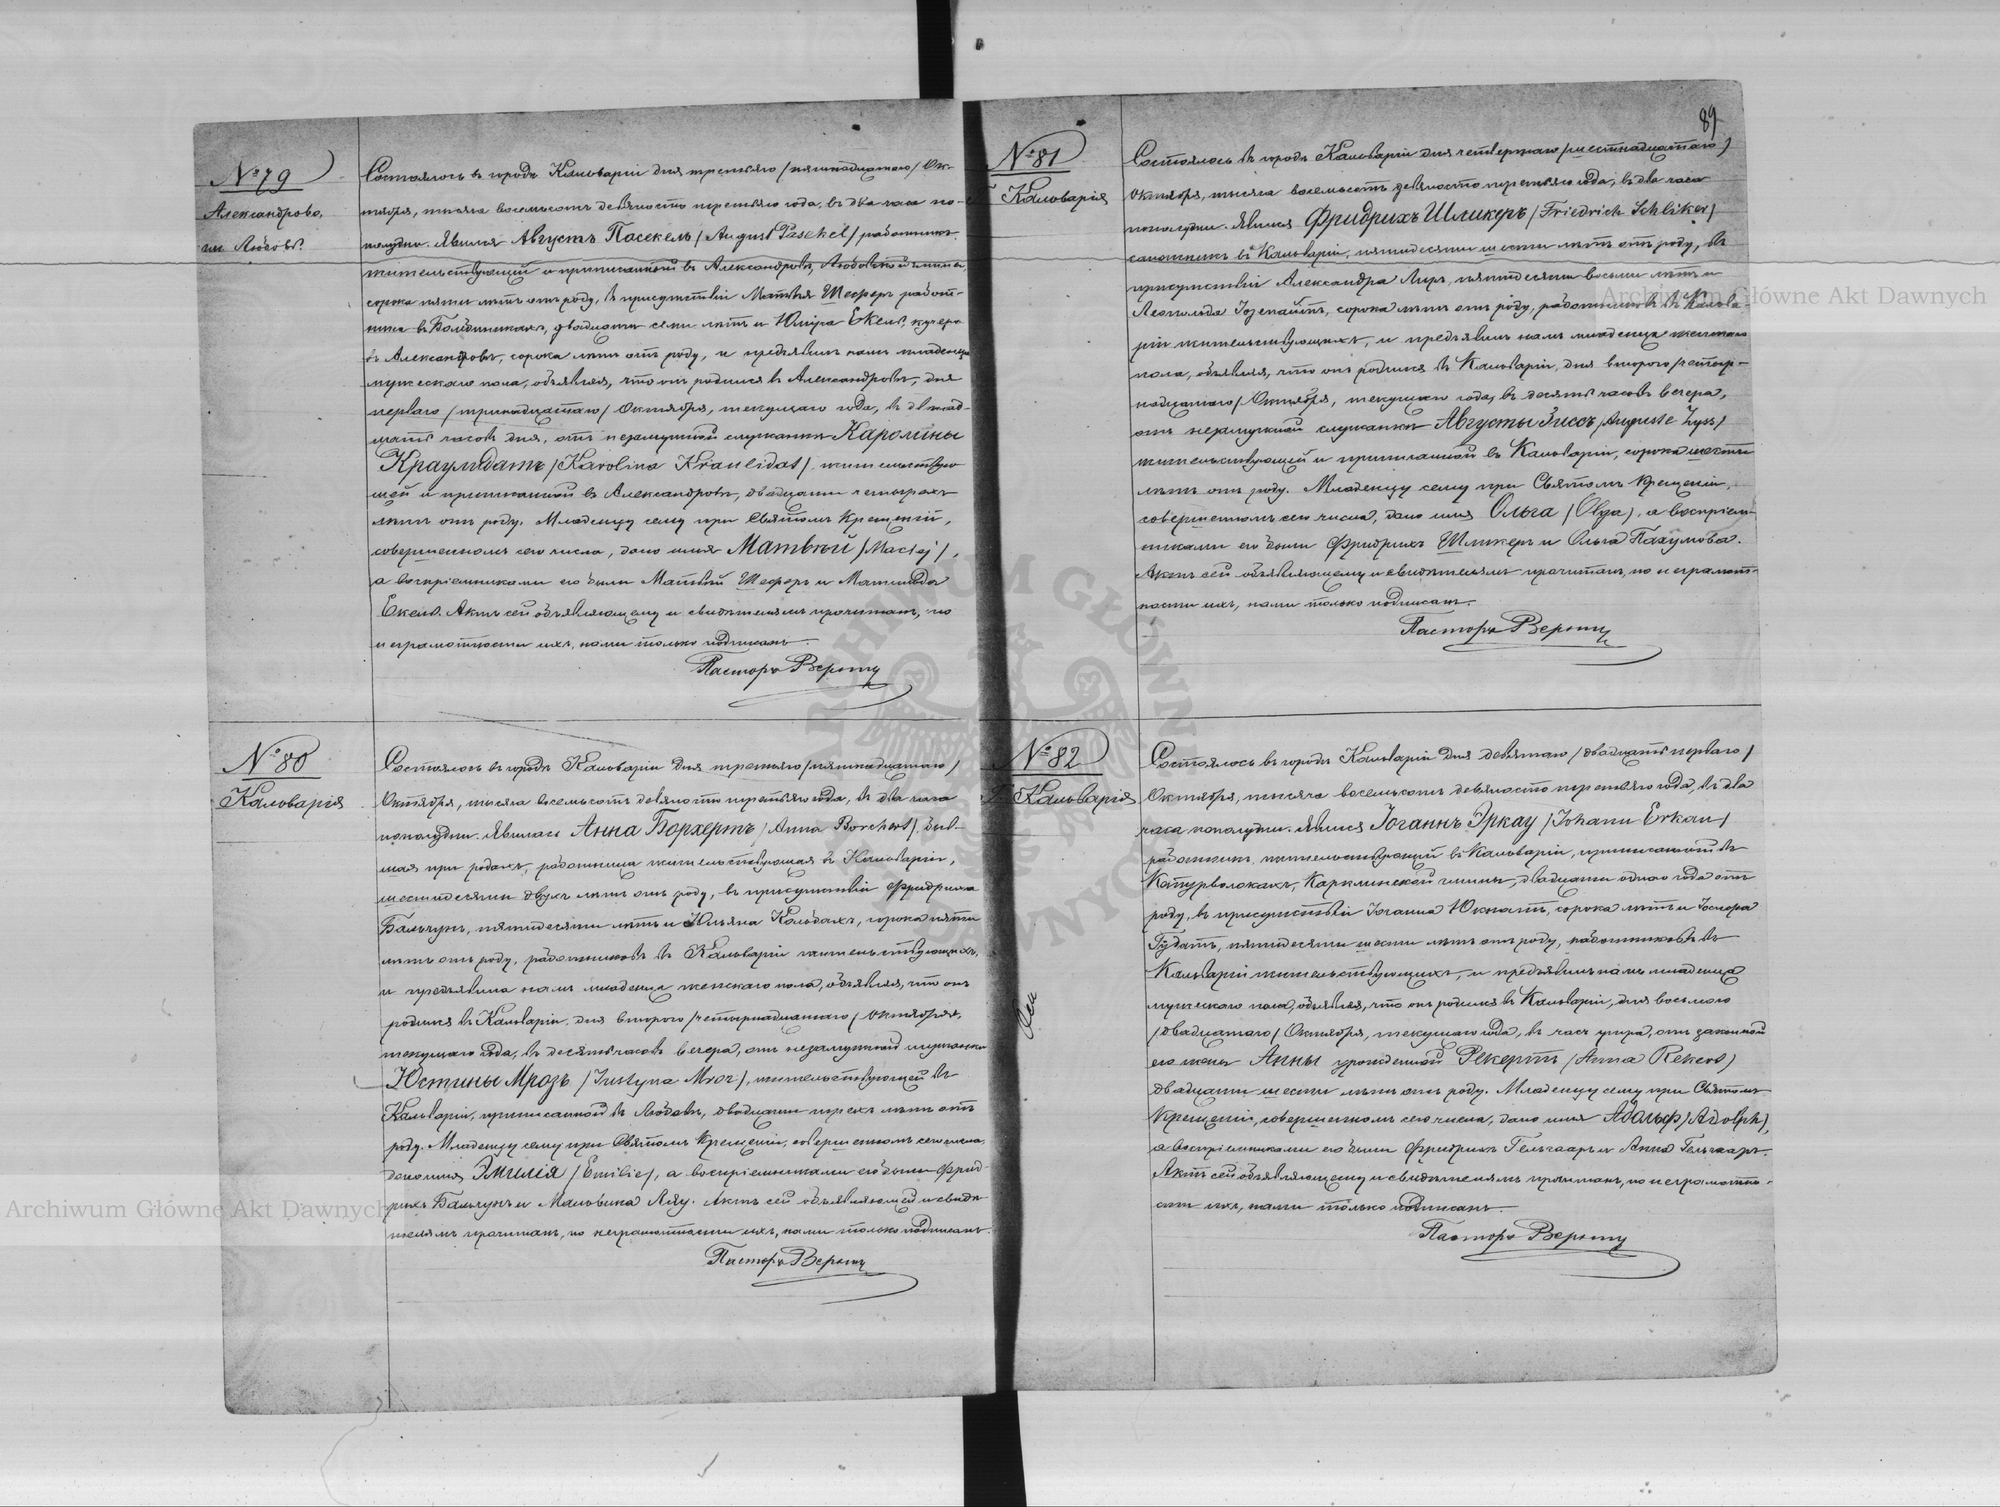 № 79
Александрово,
гм. Любовъ.
Состоялось въ городѣ Кальваріи дня третьяго /пятнадцатаго/ Ок-
тября, тысяча восемьсотъ девяносто третьяго года, въ два часа по-
полудни. Явился Августъ Пасекель /August Pasekel/ работникъ,
жительствующій и приписанный въ Александровѣ, Любовской гмины,
сорока пяти лѣтъ отъ роду, въ присутствіи Матвѣя Шеферъ работ-
ника въ двадцати семи лѣтъ и кучера
въ Александровѣ, сорока лѣтъ отъ роду, и предъявилъ намъ младенца
мужескаго пола, объявляя, что онъ родился въ Александровѣ, дня
перваго /тринадцатаго/ Октября, текущаго года, въ двѣнад-
цать часовъ дня, отъ незамужней служанки Каролины
Краулидатъ /Karolina Kraulidat/, жительствую-
щей и приписанной въ Александровѣ, двадцати четырехъ
лѣтъ отъ роду. Младенцу сему при Святомъ Крещеніи,
совершенномъ сего числа, дано имя Матвѣй /Maciej/,
а воспріемниками его были Матвѣй Шеферъ и Матильда
Екель. Актъ сей объявляющему и свидѣтелямъ прочитанъ, по
неграмотности ихъ, нами только подписанъ.
Пасторъ
№ 80
Кальварія
Состоялось въ городѣ Кальваріи дня третьяго /пятнадцатаго/
Октября, тысяча восемьсотъ девяносто третьяго года, въ два часа
пополудни. Явилась Анна Борхертъ /Anna Borchert/, быв-
шая при родахъ, работница жительствующая въ Кальваріи,
шестидесяти двухъ лѣтъ отъ роду, въ присутствіи Фридриха
Бальчунъ, пятидесяти лѣтъ и Юльяна сорока пяти
лѣтъ отъ роду, работниковъ въ Кальваріи жительствующихъ,
и предъявила намъ младенца женскаго пола, объявляя, что онъ
родился въ Кальваріи, дня втораго /четырнадцатаго/ Октября,
текущаго года, въ десять часовъ вечера, отъ незамужней служанки
Юстины Мрозъ /Justyna Mroz/, жительствующей въ
Кальваріи, приписанной въ Любовѣ, двадцати трехъ лѣтъ отъ
роду. Младенцу сему при Святомъ Крещеніи, совершенномъ сего числа,
дано имя Эмилія /Emilie/, а воспріемниками его были Фрид-
рихъ Бальчунъ и Мальвина Актъ сей объявляющей и свидѣ-
телямъ прочитанъ, по неграмотности ихъ, нами только подписанъ.
Пасторъ
89
№ 81
Кальварія
Состоялось въ городѣ Кальваріи дня четвертаго /шестнадцатаго/
Октября, тысяча восемьсотъ девяносто третьяго года, въ два часа
пополудни. Явился Фридрихъ Шликеръ /Friedrich Schliker/
сапожникъ въ Кальваріи, пятидесяти шести лѣтъ отъ роду, въ
присутствіи Александра пятидесяти восьми лѣтъ и
Леопольда сорока лѣтъ отъ роду, работниковъ въ Кальва-
ріи жительствующихъ, и предъявилъ намъ младенца женскаго
пола, объявляя, что онъ родился въ Кальваріи, дня втораго /четыр-
надцатаго/ Октября, текущаго года, въ десять часовъ вечера,
отъ незамужней служанки Августы Зиссъ /Auguste Zyss/
жительствующей и приписанной въ Кальваріи, сорока шести
лѣтъ отъ роду. Младенцу сему при Святомъ Крещеніи,
совершенномъ сего числа, дано имя Ольга /Olga/, а воспріем-
никами его были Фридрихъ Шликеръ и Ольга Пахумова.
Актъ сей объявляющему и свидѣтелямъ прочитанъ, по неграмот-
ности ихъ, нами только подписанъ.
Пасторъ
№ 82
Кальварія
Состоялось въ городѣ Кальваріи дня девятаго /двадцать перваго/
Октября, тысяча восемьсотъ девяносто третьяго года, въ два
часа пополудни. Явился Іоганнъ Эркау /Johann Erkau/
работникъ, жительствующій въ Кальваріи, приписанный въ
Катурволокахъ, Карклинской гмины, двадцати одного года отъ
роду, въ присутствіи Іоганна Юкнатъ, сорока лѣтъ и
пятидесяти шести лѣтъ отъ роду, работниковъ въ
Кальваріи жительствующихъ, и предъявилъ намъ младенца
мужескаго пола, объявляя, что онъ родился въ Кальваріи, дня восьмаго
/двадцатаго/ Октября, текущаго года, въ часъ утра, отъ законной
его жены Анны урожденной Рекертъ /Anna Rekert/
двадцати шести лѣтъ отъ роду. Младенцу сему при Святомъ
Крещеніи, совершенномъ сего числа, дано имя Адольфъ /Adolph/,
а воспріемниками его были Фридрихъ Гельгааръ и Анна Гельгааръ.
Актъ сей объявляющему и свидѣтелямъ прочитанъ, по неграмотно-
сти ихъ, нами только подписанъ.
Пасторъ
Archiwum Główne Akt Dawnych
Archiwum Główne Akt Dawnych